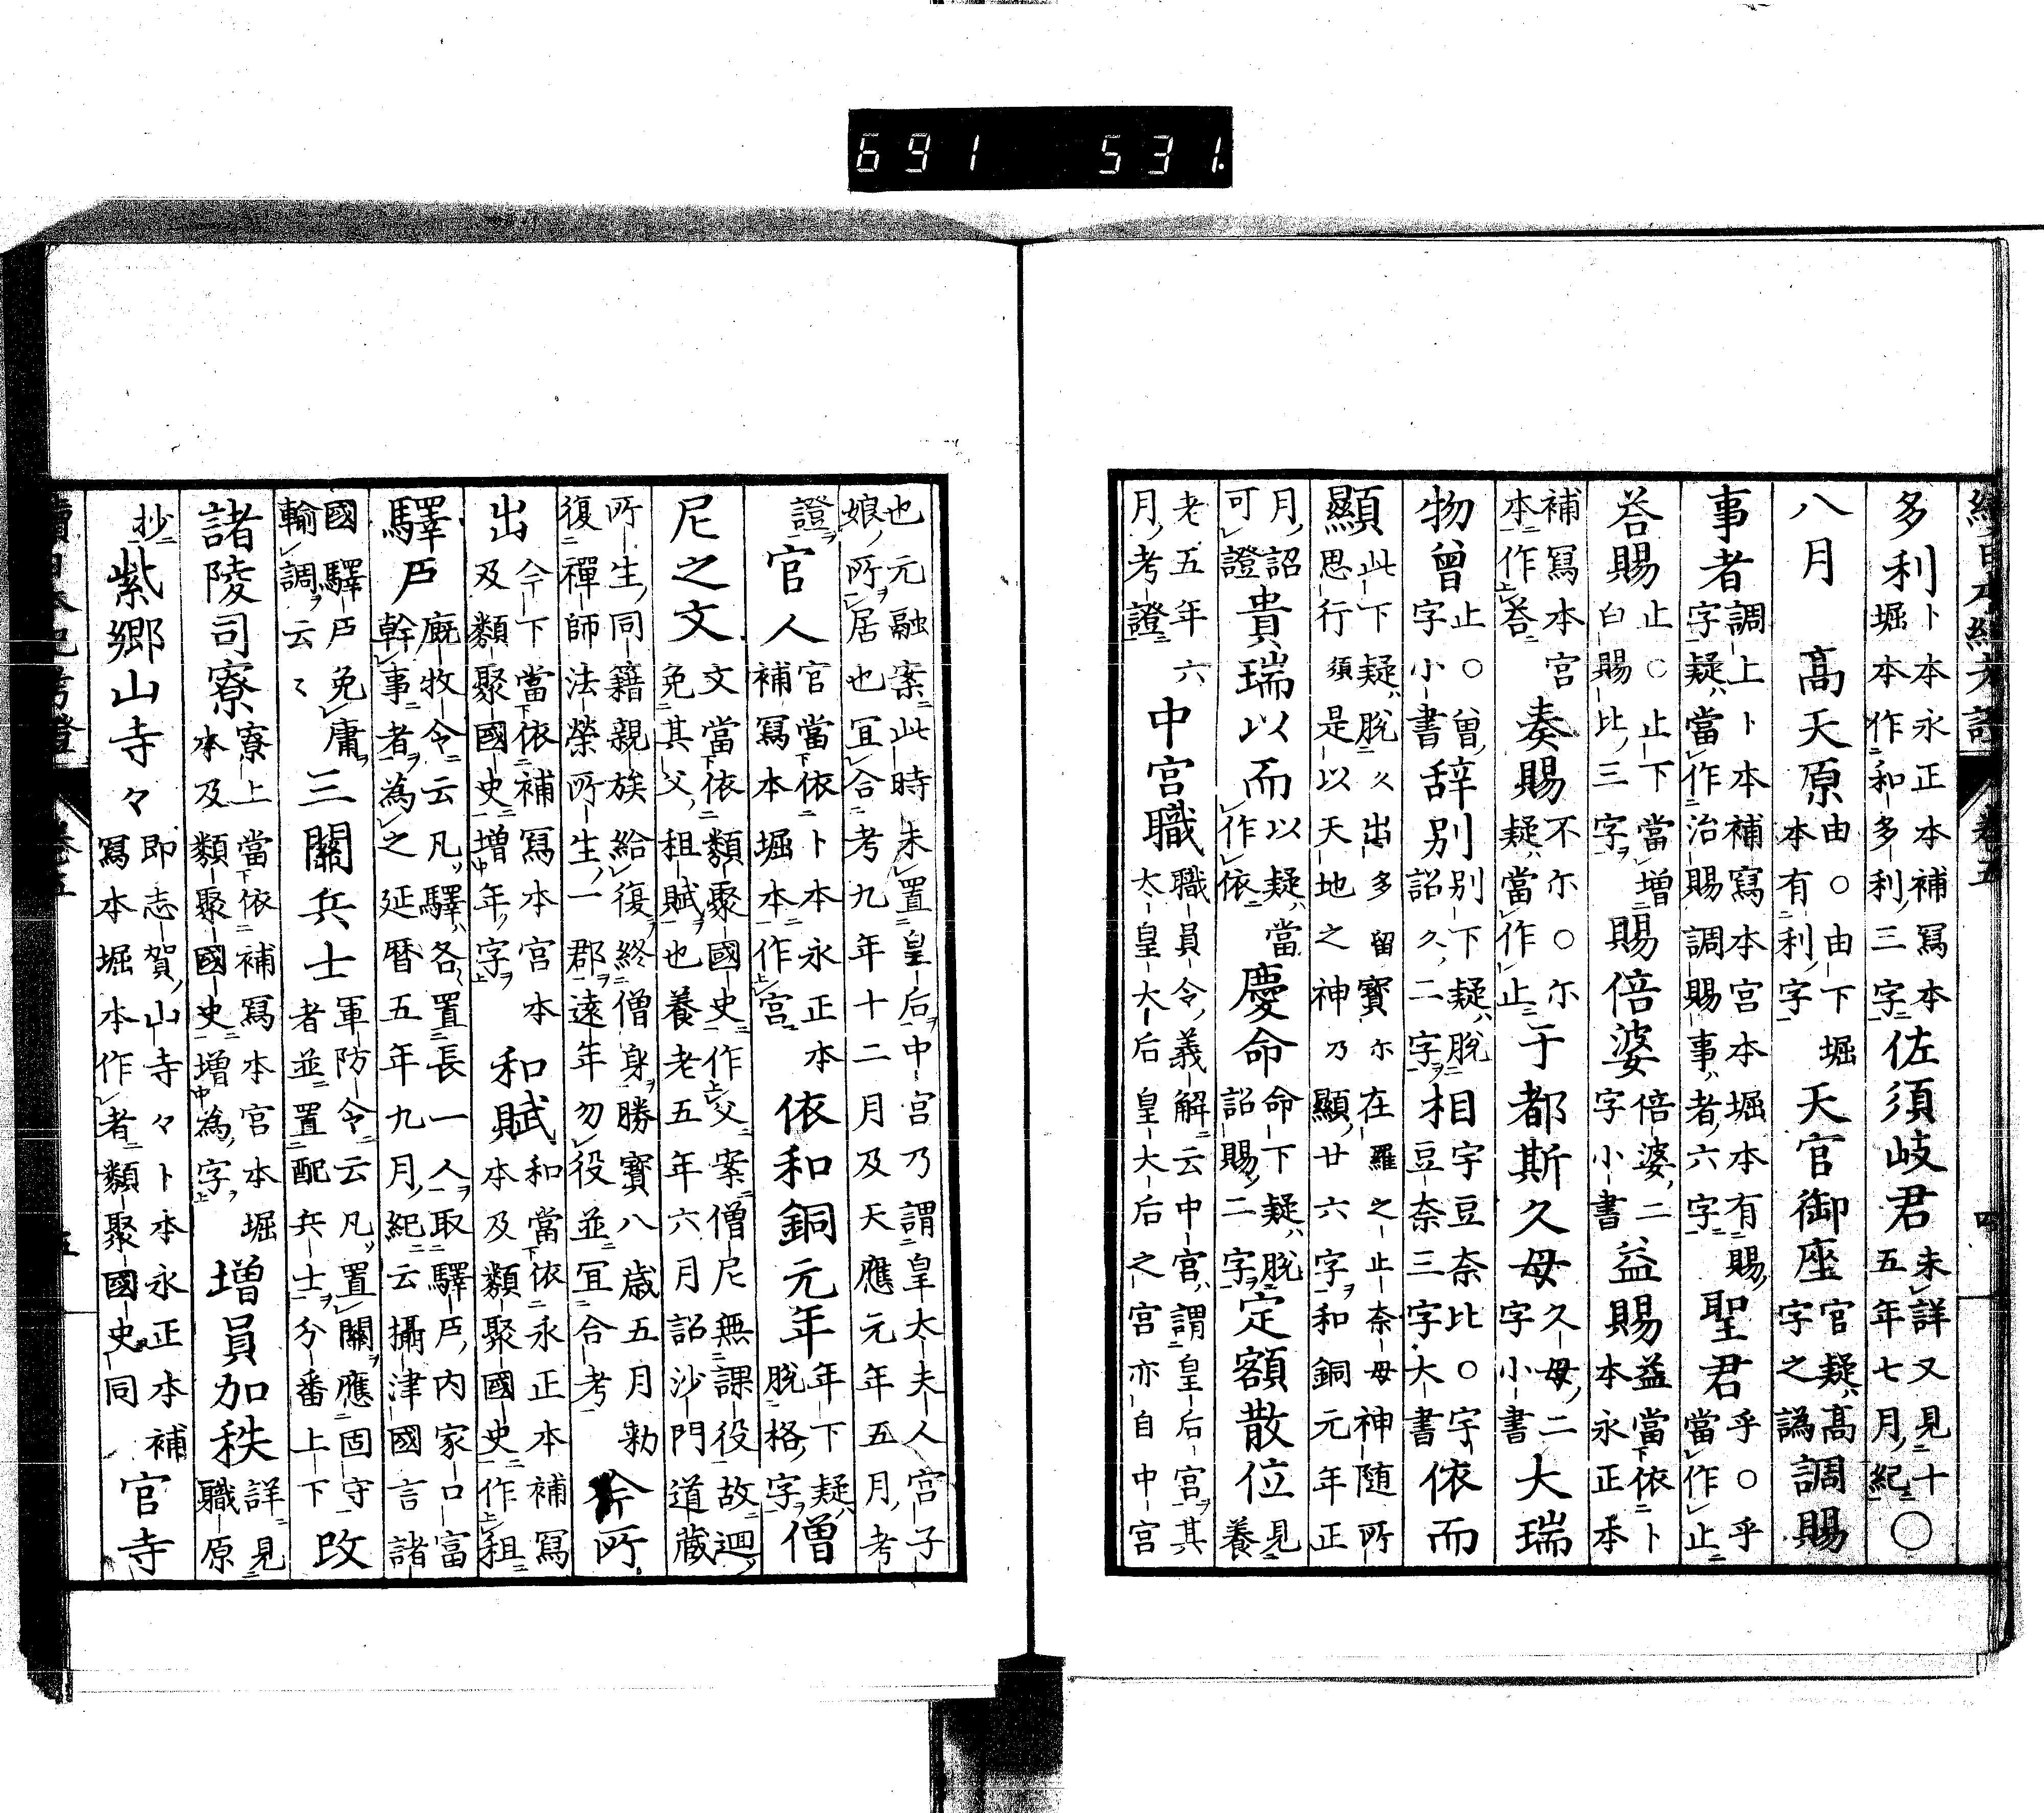 691 531.
多利卜本永正本補寫本堀本作和多利三字佐須岐君未詳又見十五年七月紀〇
八月 髙天原由〇由下堀本有利字天官御座官疑髙字之譌調賜
事者調上卜本補寫本宮本堀本有賜字疑當作治賜調賜事者六字聖君乎〇乎當作止
荅賜止〇止下當增白賜比三字賜倍婆倍婆二字小書益賜益當依卜本永正本
補寫本宮本作荅奏賜不尓〇尓疑當作止于都斯久母久母二字小書大瑞
物曾止〇曾字小書辞別別下疑脫詔久二字相宇豆奈比〇宇豆奈三字大書依而
顯此下疑脫久出多留寳尓在羅之止奈母神随所思行須是以天地之神乃顯廿六字和銅元年正
月詔可證貴瑞以而以疑當作依慶命命下疑脫詔賜二字定額散位見養
老五年六月考證中宮職職員令義解云中宮謂皇后宮其太皇大后皇大后之宮亦自中宮
也元融案此時未置皇后中宮乃謂皇太夫人宮子娘所居也冝合考九年十二月及天應元年五月考
證官人官當依卜本永正本補寫本堀本作宮依和銅元年年下疑脫格字僧
尼之文文當依類聚國史作父案僧尼無課役故迴免其父租賦也養老五年六月詔沙門道藏
所生同籍親族給復終僧身勝寳八歲五月勅復禪師法榮所生一郡遠年勿役並冝合考今所
出今下當依補寫本宮本及類聚國史增年字和賦和當依永正本補寫本及類聚國史作租
驛戶廐牧令云凡驛各置長一人取驛戶內家口富幹事者為之延暦五年九月紀云攝津國言諸
國驛戶免庸輸調云〻三關兵士軍防令云凡置關應固守者並置配兵士分番上下改
諸陵司寮寮上當依補寫本宮本堀本及類聚國史增為字增員加秩詳見職原
抄紫鄉山寺々即志賀山寺々卜本永正本補寫本堀本作者類聚國史同官寺